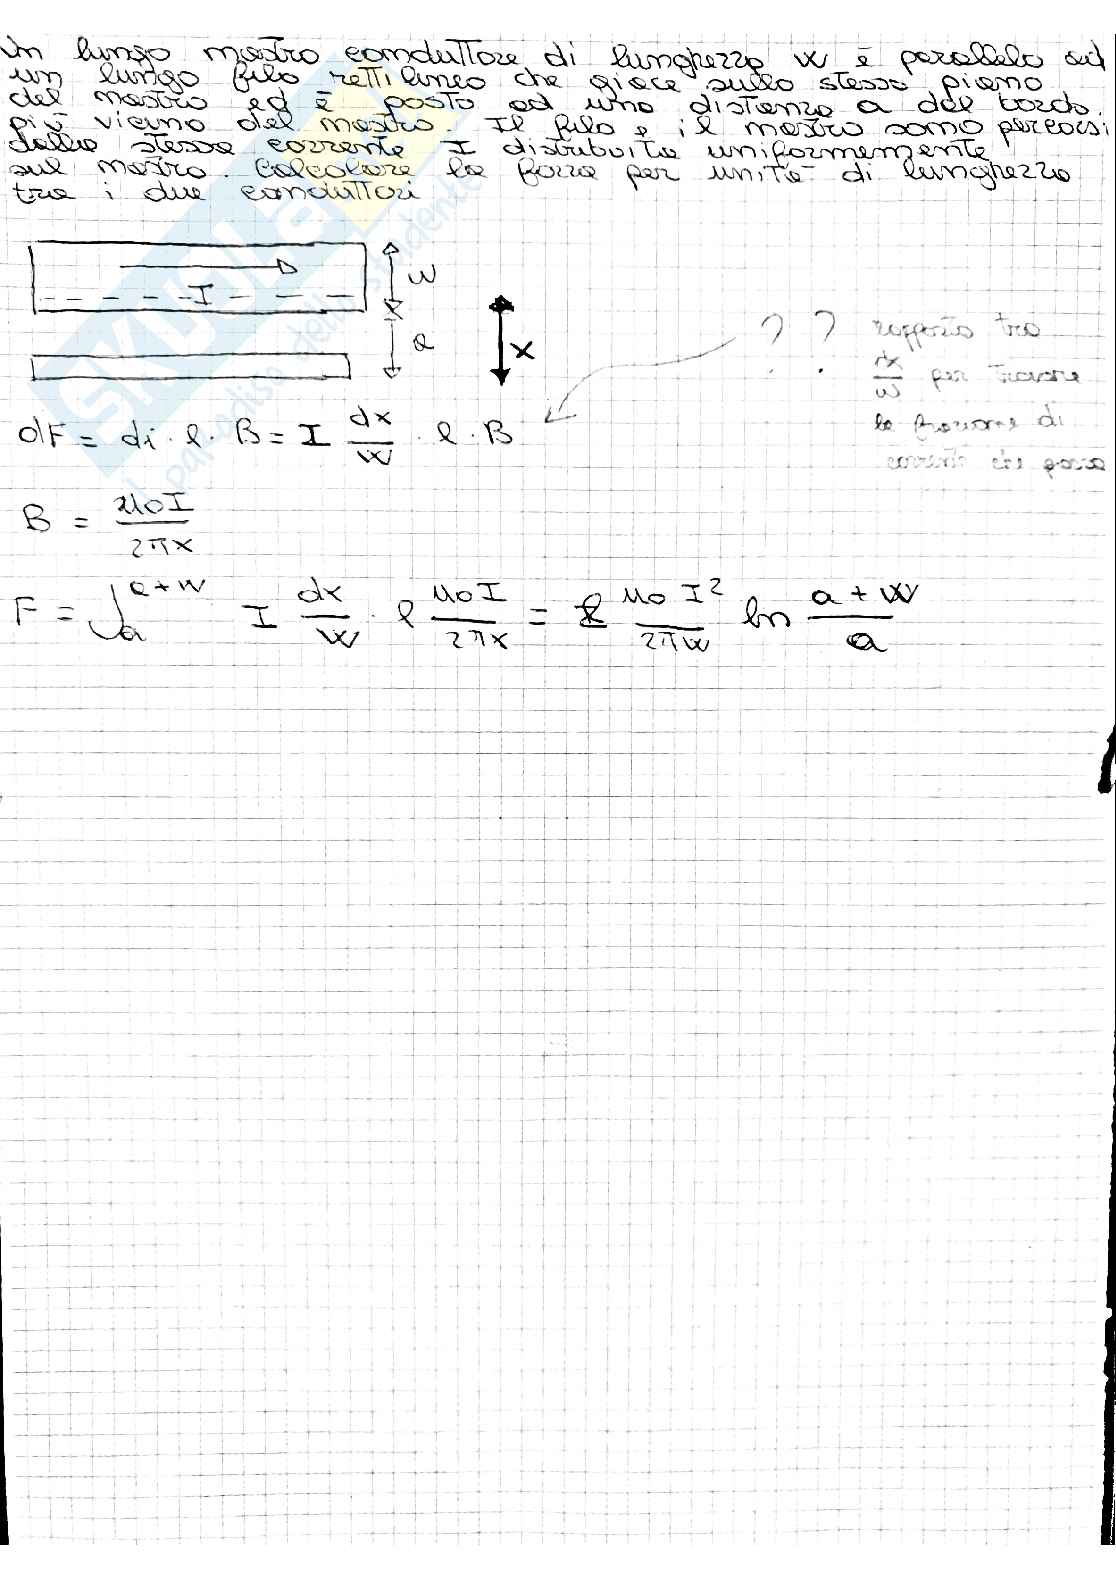 Un lungo nastro conduttore di lunghezza w è parallelo ad
un lungo filo rettilineo che giace sullo stesso piano
del nastro ed è posto ad una distanza a dal bordo
più vicino del nastro. Il filo e il nastro sono percorsi
dalla stessa corrente I distribuita uniformemente
sul nastro. Calcolare la forza per unità di lunghezza
tra i due conduttori
I
w
a
x
? ? rapporto tra
dx/w per trovare
la frazione di
corrente che passa
dF = di · l · B = I dx/w · l · B
B = μ0 I / 2πx
F = ∫_a^{a+w} I dx/w · l μ0 I / 2πx = μ0 I² / 2πw ln (a + w)/a
SKUOLA
il paradiso dello studente